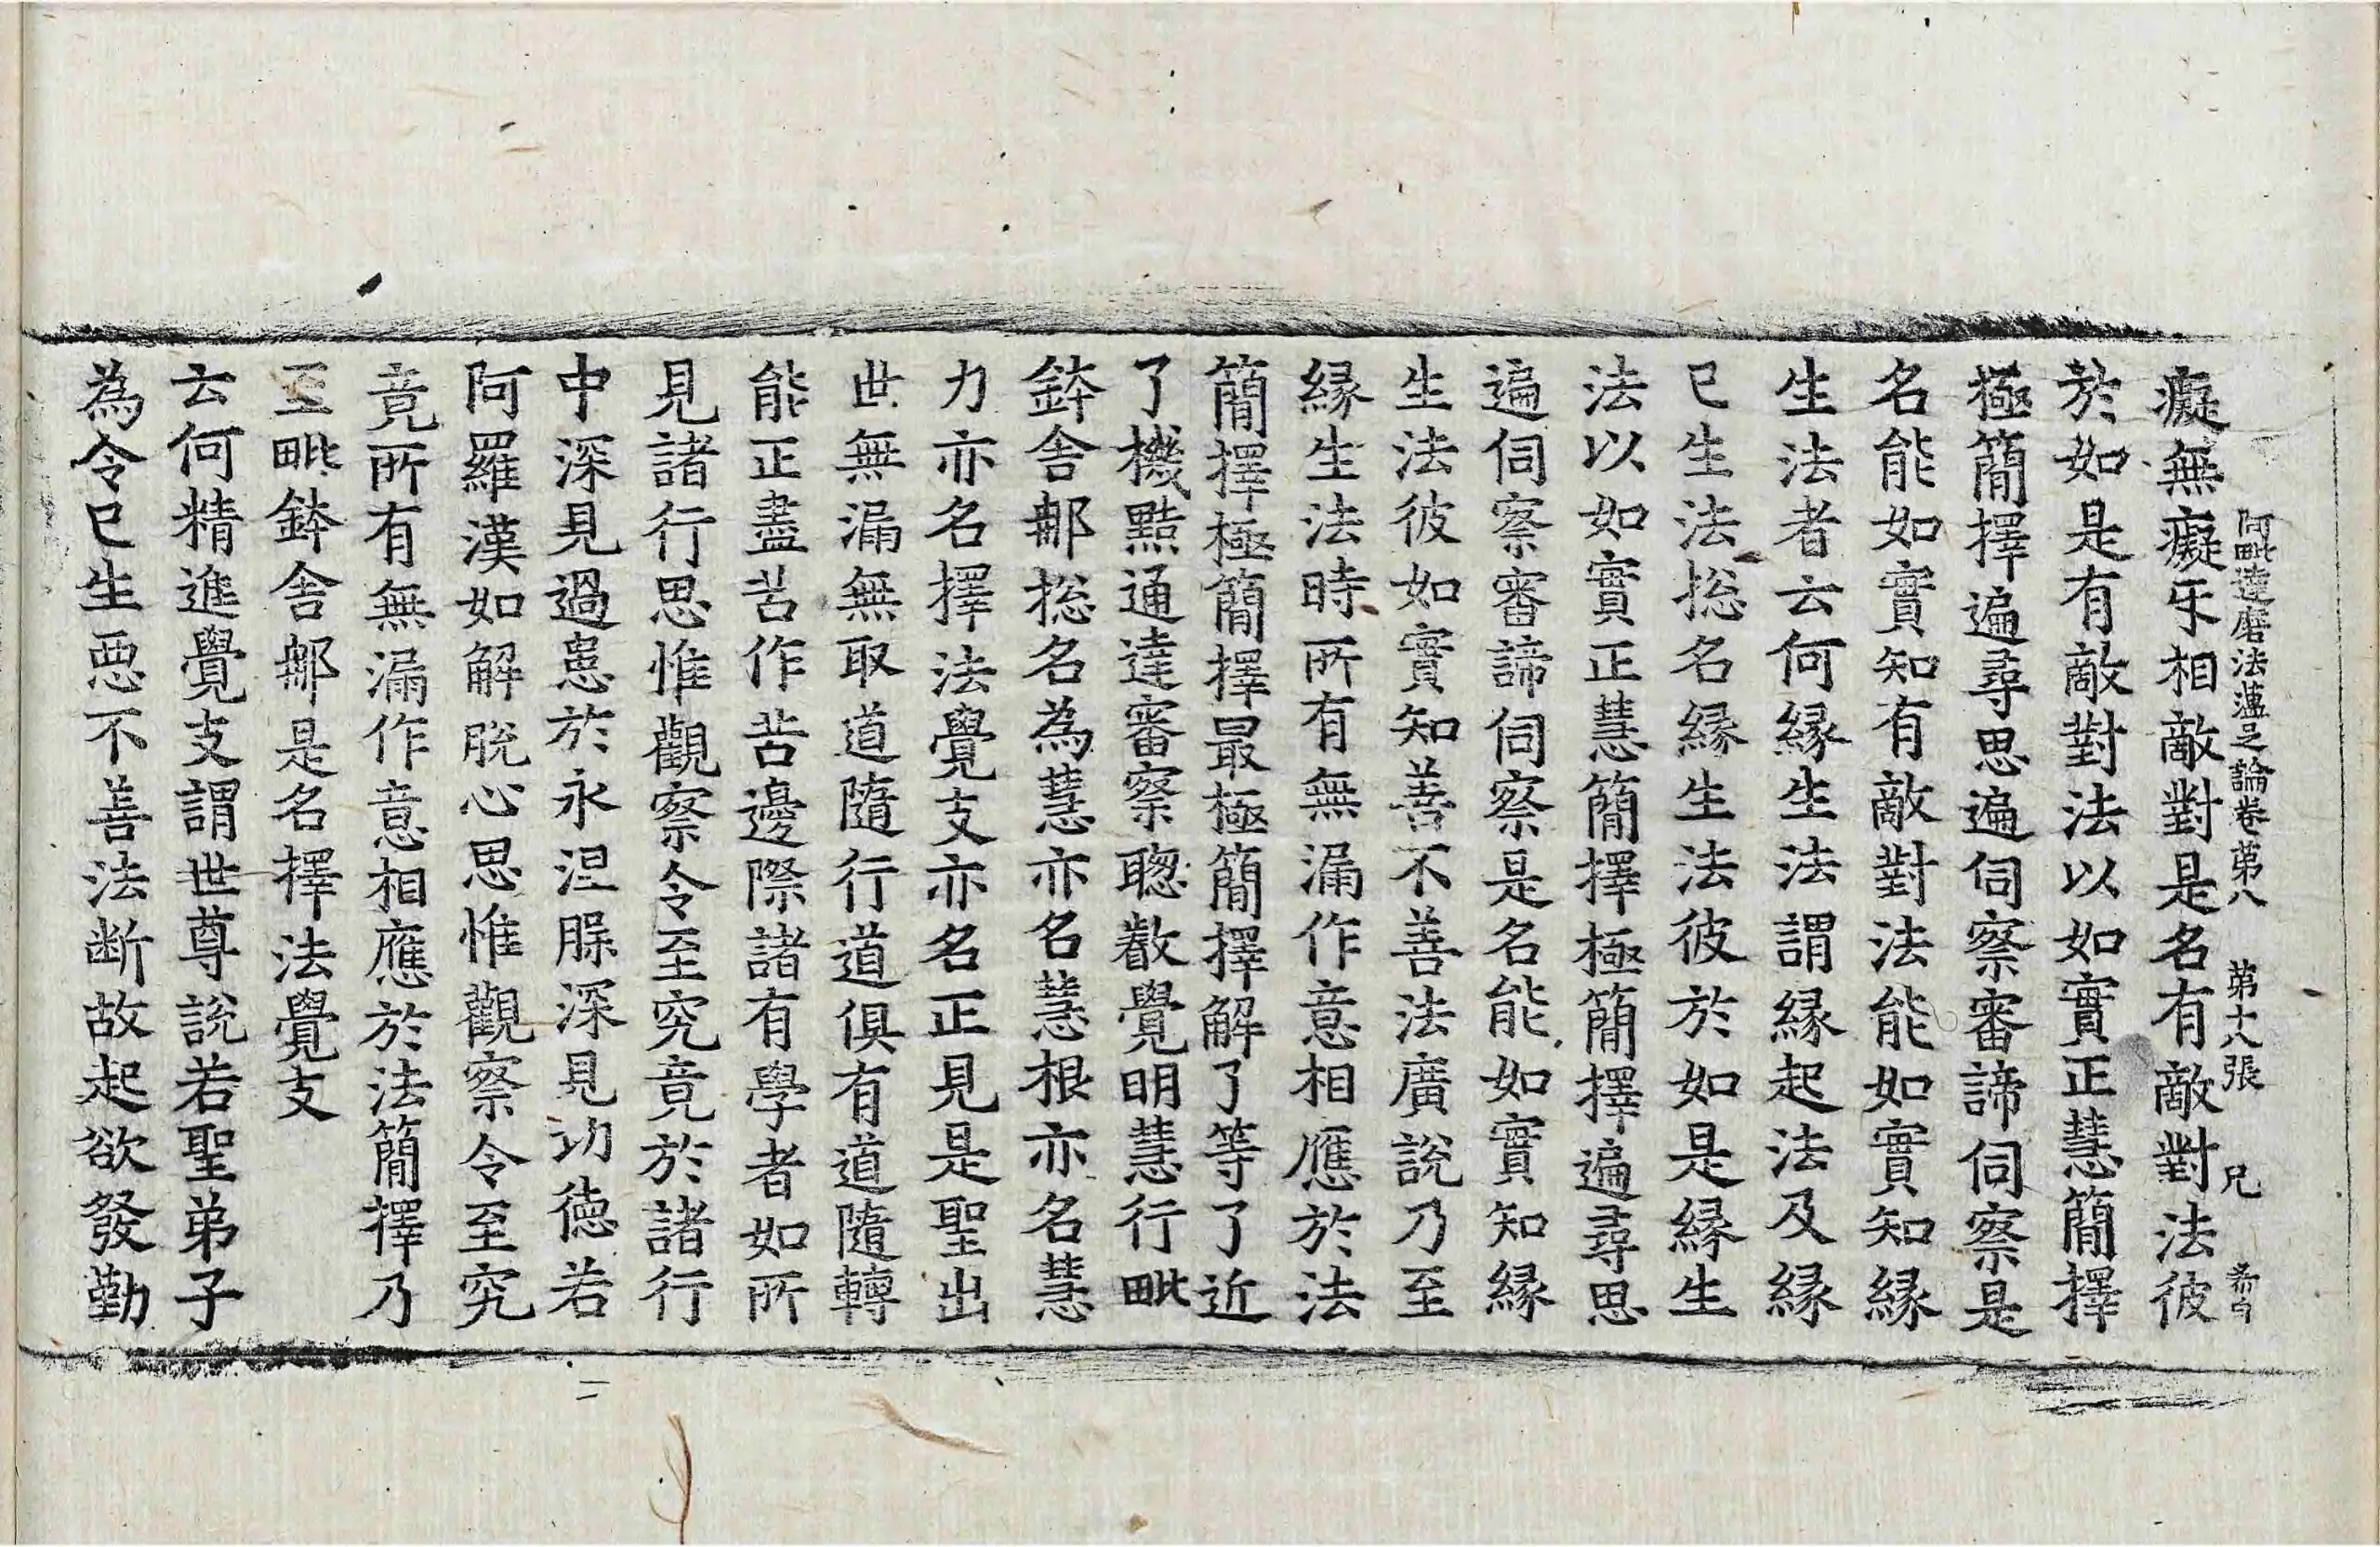 阿毗達磨法蘊足論卷第八 第十八張 兄
癡無癡互相敵對是名有敵對法彼
於如是有敵對法以如實正慧簡擇
極簡擇遍尋思遍伺察審諦伺察是
名能如實知有敵對法能如實知緣
生法者云何緣生法謂緣起法及緣
已生法揔名緣生法彼於如是緣生
法以如實正慧簡擇極簡擇遍尋思
遍伺察審諦伺察是名能如實知緣
生法彼如實知善不善法廣說乃至
緣生法時所有無漏作意相應於法
簡擇極簡擇最極簡擇解了等了近
了機黠通達審察聰叡覺明慧行毗
鉢舍那揔名為慧亦名慧根亦名慧
力亦名擇法覺支亦名正見是聖出
世無漏無取道隨行道俱有道隨轉
能正盡苦作苦邊際諸有學者如所
見諸行思惟觀察令至究竟於諸行
中深見過患於永涅槃深見功德若
阿羅漢如解脫心思惟觀察令至究
竟所有無漏作意相應於法簡擇乃
至毗鉢舍那是名擇法覺支
云何精進覺支謂世尊說若聖弟子
為令已生惡不善法斷故起欲發勤
二